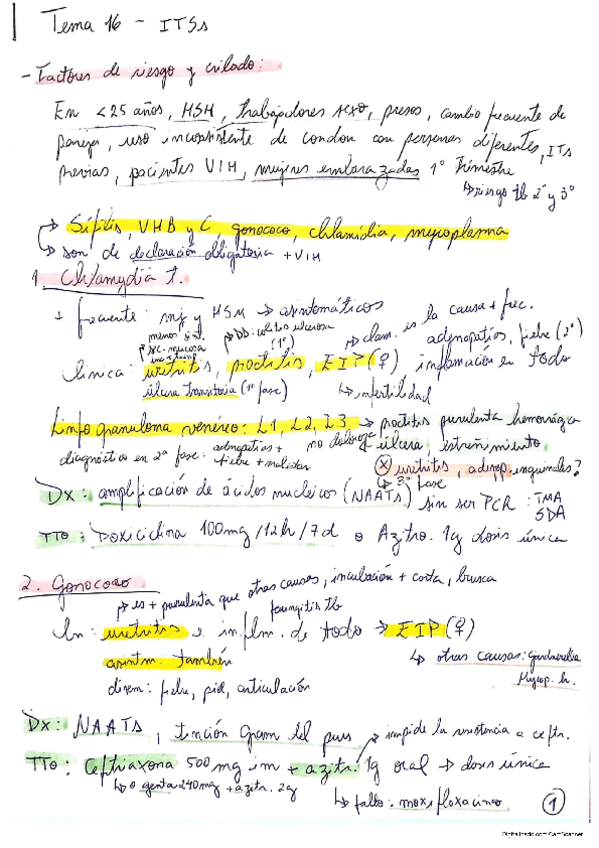 Tema 16 - ITSs
- Factores de riesgo y cribado:
En <25 años, HSH, trabajadores sexo, presos, cambio frecuente de
pareja, uso inconsistente de condon con personas diferentes, ITs
previas, pacientes VIH, mujeres embarazadas 1º Trimestre
↳ riesgo tb 2º y 3º
→ Sífilis, VHB y C, gonococo, chlamidia, mycoplasma
↳ son de declaración obligatoria + VIH
1. Chlamydia t.
+ frecuente: muj y HSH → asintomáticos
→ clam. es la causa + frec.
menos sint.
sec. mucosa
→ DD: colitis ulcerosa
(1º)
adenopatías, fiebre (2º)
Clínica: uretritis, proctitis, EIP (♀) inflamación en todo
úlcera transitoria (1ª fase)
↳ infertilidad
Linfogranuloma venéreo: L1, L2, L3 → proctitis purulenta hemorrágica
diagnóstico en 2ª fase: adenopatías +
fiebre + malestar
no dolorosa
úlcera, estreñimiento
ⓧ uretritis, adenop. inguinales?
↳ 3ª fase
Dx: amplificación de ácidos nucleicos (NAATs) sin ser PCR: TMA
SDA
TTO: Doxiciclina 100mg/12h/7d o Azitro. 1g dosis única
2. Gonococo
→ es + purulenta que otras causas, incubación + corta, brusca
faringitis tb
Cln: uretritis e inflm. de todo → EIP (♀)
asintm. también
↳ otras causas: Gardnerella
Mycop. h.
disem: fiebre, piel, articulación
Dx: NAATs, tinción Gram del pus
→ impide la resistencia a ceftr.
TTO: Ceftriaxona 500 mg im + azitr. 1g oral → dosis única
↳ o genta 240mg + azitr. 2g
↳ fallo: moxifloxacino
1
Digitalizado con CamScanner